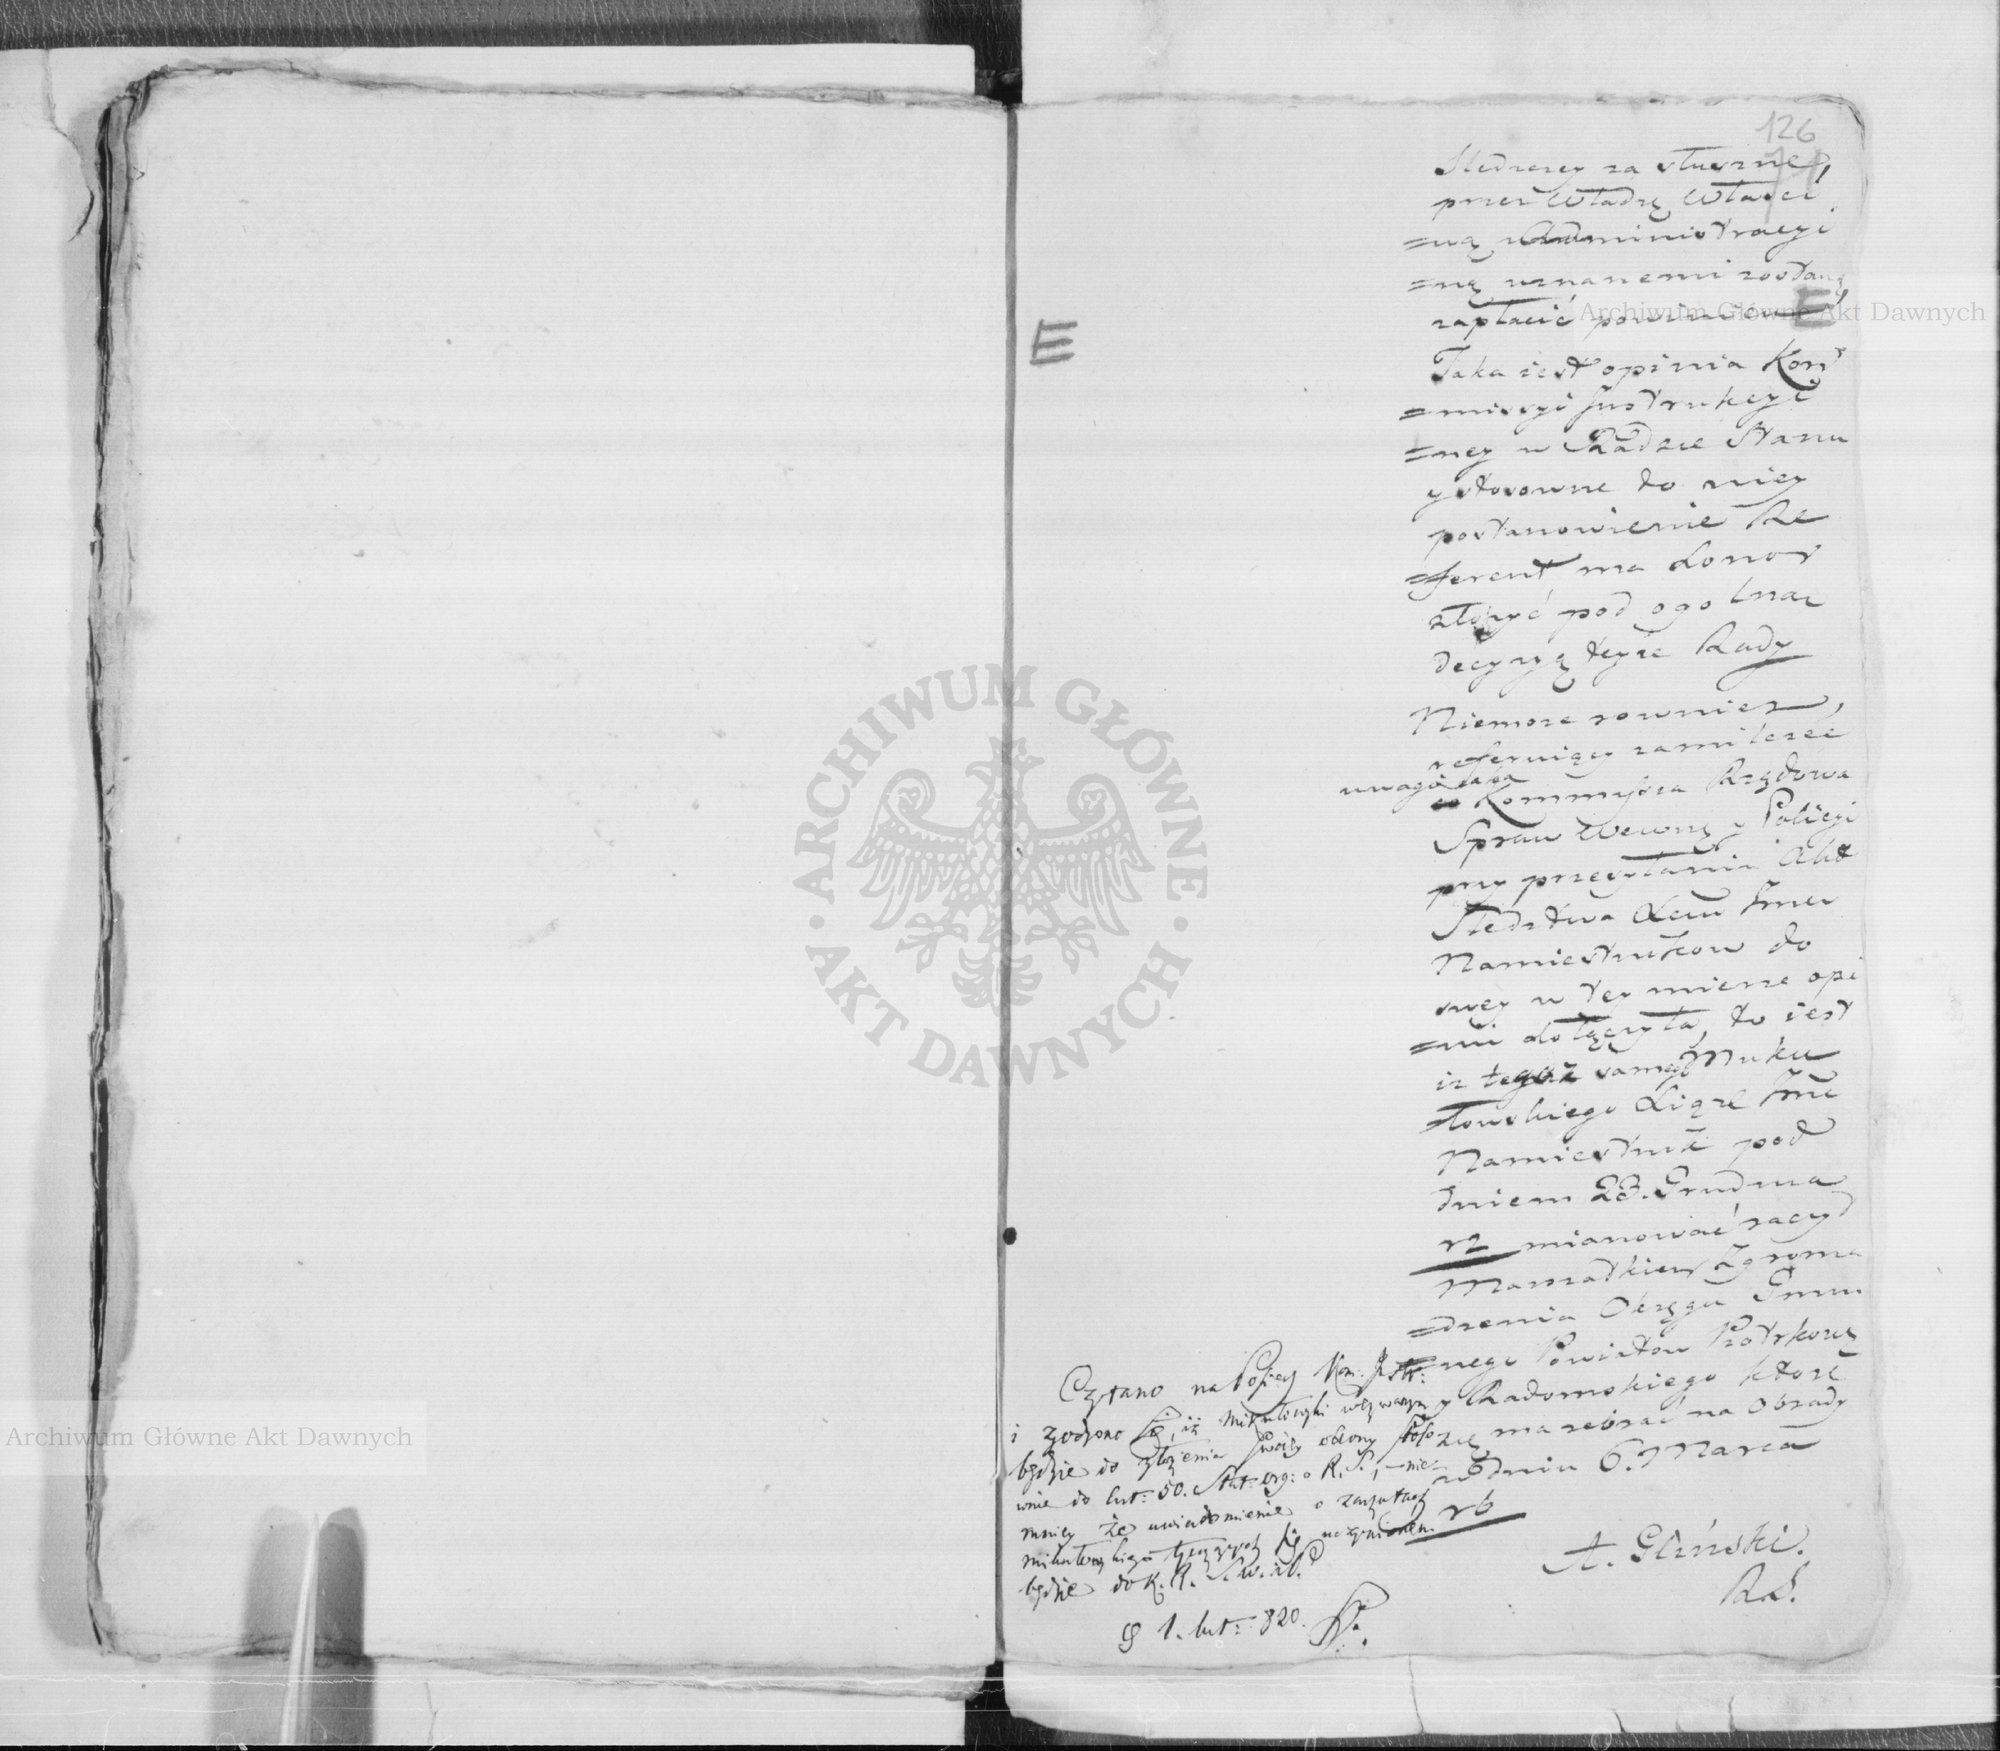 126
Sledczey za słuszne,
przez Władzę Właści
=wą Administracyi
=ną uznanemi zostaną,
zapłacić powinien
E
E
Taka iest opinia Kom
=missyi Instrukcyi
=ney w Radzie Stanu
y stosowne do niey
postanowienie Re
=ferent ma honor
złożyć pod ogolnaę
decyzyą teyże Rady
Niemoże rownież,
referuiący zamilczeć
uwagi iaką
Kommissya Rządowa
Spraw Wewnę y Policyi
przy przesyłaniu Akt
Sledztwa Xciu Jmci
Namiestnikow do
swey w tey mierze opi
=nii dołączyła, to iest
iż tegoż samego Miku
=łowskiego Xiąże Jmć
Namiestnik pod
dniem 23. Grudnia
rz mianować raczył
Marszałkiem Zgroma
=dzenia Okręgu Gmin
=nego Powiatow Piotrkows
y Radomskiego ktore
się ma zebrać na Obrady
w dniu 6. Marca
rb
A. Gliński.
R.S.
Czytano na Posiedz. Kom. Instr:
i zgodzono się, iż Mikułowski wezwanym
będzie do złożenia swoiey obrony stoso
wnie do Art: 50. Stat: Org: o R. S., – nie
mniey że uwiadomienie o zarzutach
Mikułowskiego tyczących się uczynionem
będzie do K. R. S. W. i P.
d 1. Lut: 820.
Archiwum Główne Akt Dawnych
Archiwum Główne Akt Dawnych
ARCHIWUM GŁÓWNE · AKT DAWNYCH ·